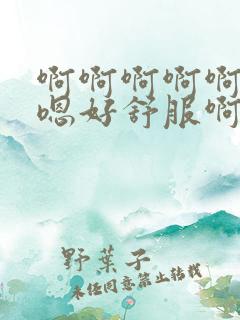 啊啊啊啊啊
嗯好舒服啊
野葉子
未经同意禁止转载